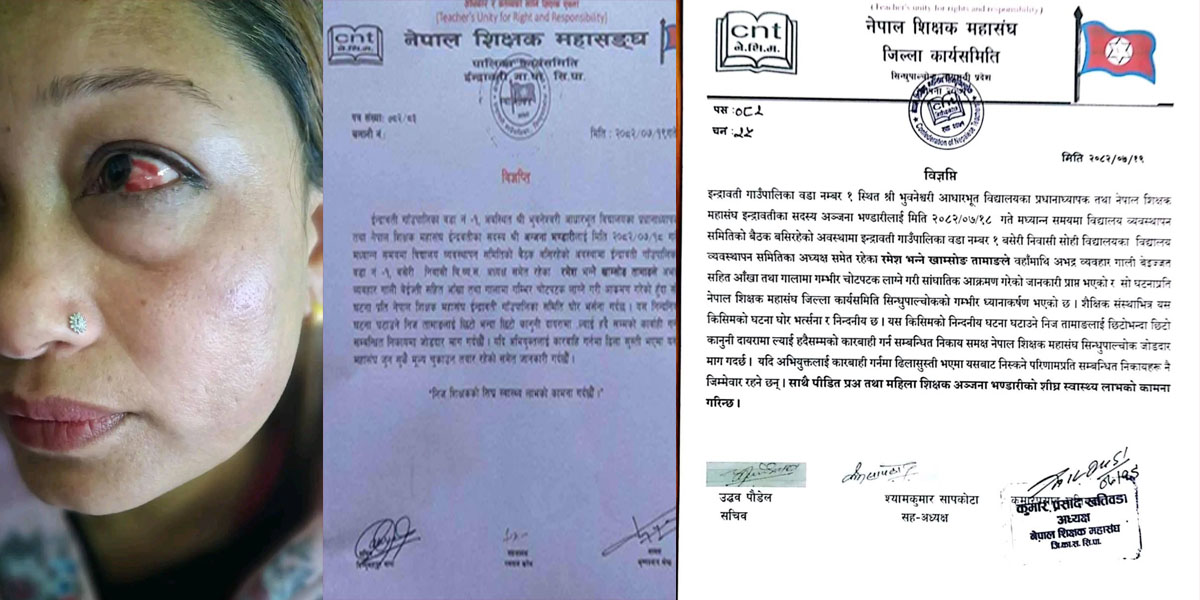 (Teacher's Unity for Right and Responsibility)
cnt
ने.शि.म.
नेपाल शिक्षक महासङ्घ
पालिका कार्यसमिति
ईन्द्रावती गा.पा. सि.पा.
पत्र संख्या:
चलानी नं :
मिति : २०८२/०७/१९गते
विज्ञप्ति
ईन्द्रावती गाउँपालिका वडा नं -१, अवस्थित श्री भुवनेश्वरी आधारभूत विद्यालयका प्रधानाध्यापक
तथा नेपाल शिक्षक महासंघ ईन्द्रवतीका सदस्य श्री अन्जना भण्डारीलाई मिति २०८२/०७/१८ गते
मध्यान्न समयमा विद्यालय व्यवस्थापन समितिको बैठक बसिरहेको अवस्थामा ईन्द्रावती गाउँपालिका
वडा नं -१, बसेरी निवासी बि.ब्य.स. अध्यक्ष समेत रहेका रमेश भन्ने खाम्सोङ तामाङले अभद्र
व्यबहार गाली बेईज्ती सहित आँखा तथा गालामा गम्भिर चोटपटक लाग्ने गरी आक्रमण गरेको हुँदा सो
घटना प्रति नेपाल शिक्षक महासंघ ईन्द्रावती गाउँपालिका समिति घोर भर्त्सना गर्दछौं । यस निन्दनिय
घटना घटाउने निज तामाङलाई छिटो भन्दा छिटो कानुनी दायरामा ल्याई हदै सम्मको कारबाही गर्न
सम्बन्धित निकायमा जोडदार माग गर्दछौं । यदि अभियुक्तलाई कारबाहि गर्न ढिला सुस्ती भएमा यस
महासंघ जुन सुकै मूल्य चुकाउन तयार रहेको समेत जानकारी गर्दछौं ।
"निज शिक्षकको सिघ्र स्वास्थ्य लाभको कामना गर्दछौं ।"
(Teacher's Unity for Right and Responsibility)
cnt
ने.शि.म.
नेपाल शिक्षक महासंघ
जिल्ला कार्यसमिति
सिन्धुपाल्चोक, प्रदेश
Confederation of Nepalese Teachers
पस :०८२
चन :२५
मिति २०८२/०७/१९
विज्ञप्ति
इन्द्रावती गाउँपालिका वडा नम्बर १ स्थित श्री भुवनेश्वरी आधारभूत विद्यालयका प्रधानाध्यापक तथा नेपाल शिक्षक
महासंघ इन्द्रावतीका सदस्य अञ्जना भण्डारीलाई मिति २०८२/०७/१८ गते मध्यान्न समयमा विद्यालय व्यवस्थापन
समितिको बैठक बसिरहेको अवस्थामा इन्द्रावती गाउँपालिका वडा नम्बर १ बसेरी निवासी सोही विद्यालयका विद्यालय
व्यवस्थापन समितिका अध्यक्ष समेत रहेका रमेश भन्ने खाम्सोङ तामाङले वहाँमाथि अभद्र व्यवहार गाली बेइज्जत
सहित आँखा तथा गालामा गम्भीर चोटपटक लाग्ने गरी सांघातिक आक्रमण गरेको जानकारी प्राप्त भएको र सो घटनाप्रति
नेपाल शिक्षक महासंघ जिल्ला कार्यसमिति सिन्धुपाल्चोकको गम्भीर ध्यानाकर्षण भएको छ । शैक्षिक संस्थाभित्र यस
किसिमको घटना घोर भर्त्सना र निन्दनीय छ । यस किसिमको निन्दनीय घटना घटाउने निज तामाङलाई छिटोभन्दा छिटो
कानुनी दायरामा ल्याई हदैसम्मको कारबाही गर्न सम्बन्धित निकाय समक्ष नेपाल शिक्षक महासंघ सिन्धुपाल्चोक जोडदार
माग गदर्छ । यदि अभियुक्तलाई कारबाही गर्नमा ढिलासुस्ती भएमा यसबाट निस्कने परिणामप्रति सम्बन्धित निकायहरू नै
जिम्मेवार रहने छन् । साथै पीडित प्रअ तथा महिला शिक्षक अञ्जना भण्डारीको शीघ्र स्वास्थ्य लाभको कामना
गरिन्छ ।
उद्धव पौडेल
सचिव
श्यामकुमार सापकोटा
सह-अध्यक्ष
कुमार प्रसाद खतिवडा
अध्यक्ष
नेपाल शिक्षक महासंघ
जि.का.स. सि.पा.